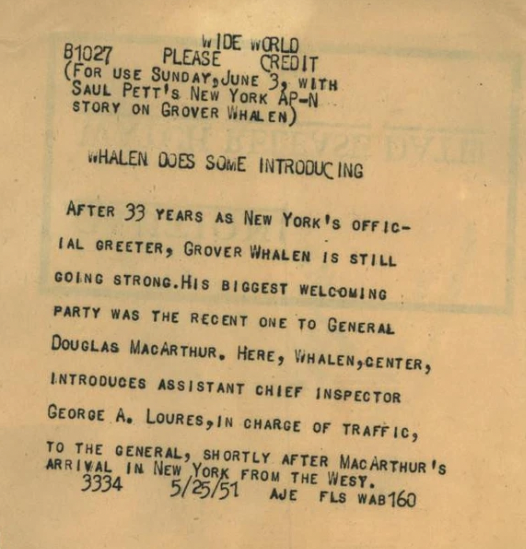 WIDE WORLD
B1027 PLEASE CREDIT
(FOR USE SUNDAY, JUNE 3, WITH
SAUL PETT'S NEW YORK AP-N
STORY ON GROVER WHALEN)
WHALEN DOES SOME INTRODUCING
AFTER 33 YEARS AS NEW YORK'S OFFIC-
IAL GREETER, GROVER WHALEN IS STILL
GOING STRONG.HIS BIGGEST WELCOMING
PARTY WAS THE RECENT ONE TO GENERAL
DOUGLAS MACARTHUR. HERE, WHALEN,CENTER,
INTRODUCES ASSISTANT CHIEF INSPECTOR
GEORGE A. LOURES,IN CHARGE OF TRAFFIC,
TO THE GENERAL, SHORTLY AFTER MACARTHUR'S
ARRIVAL IN NEW YORK FROM THE WEST.
3334 5/25/51 AJE FLS WAB160